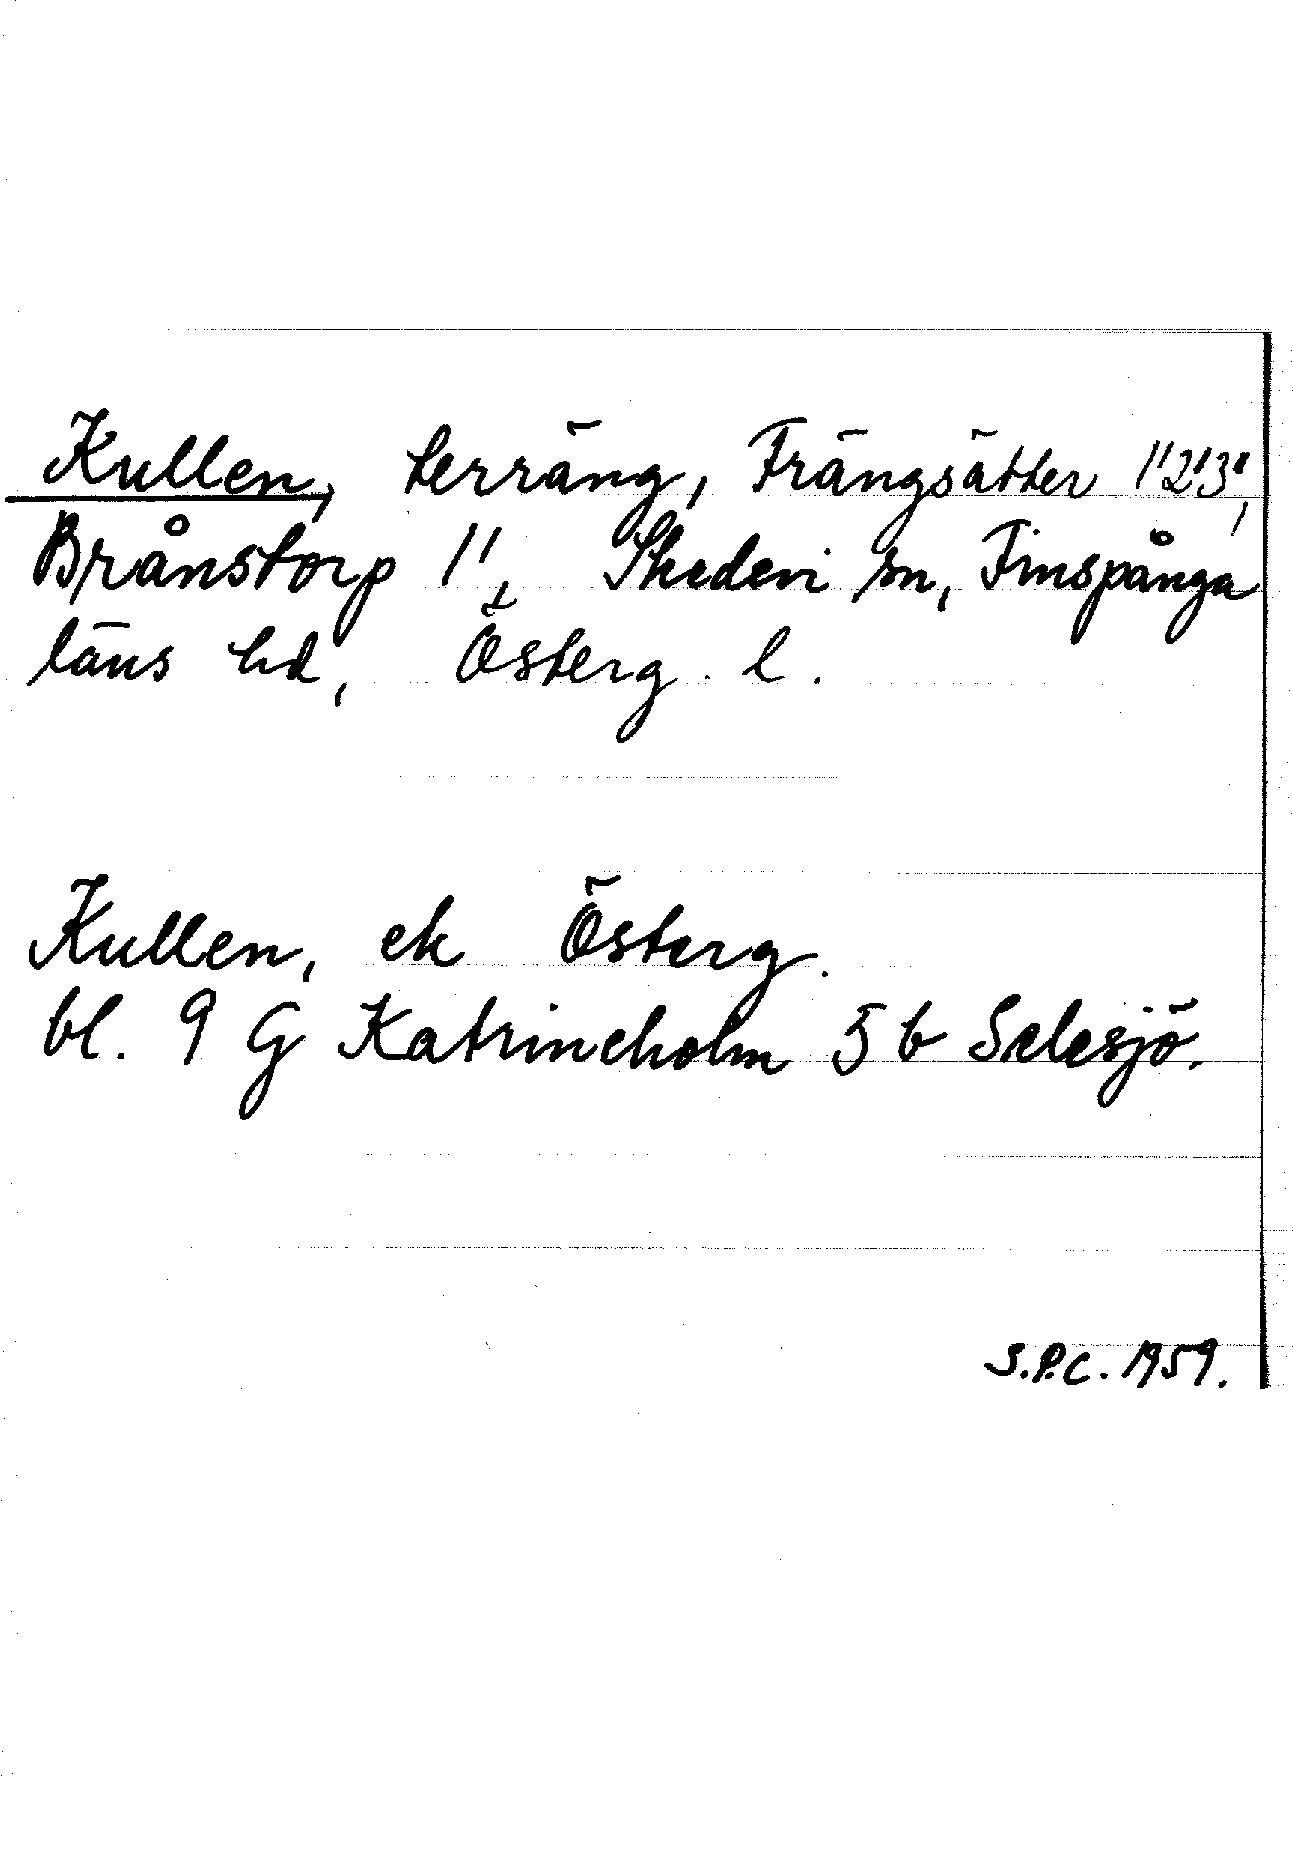 Kullen, terräng, Frängsätter 1'2'3',
Brånstorp 1', Skedevi sn, Finspånga
läns hd, Österg. l.
Kullen, ek Österg.
bl. 9 G Katrineholm 5 b Selesjö.
S.P.C. 1959.